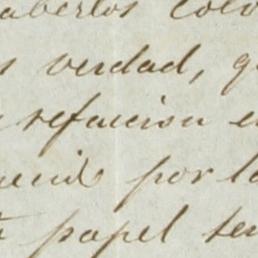 aberlos colo
s verdad, q
refaccion e
por lo
papel se